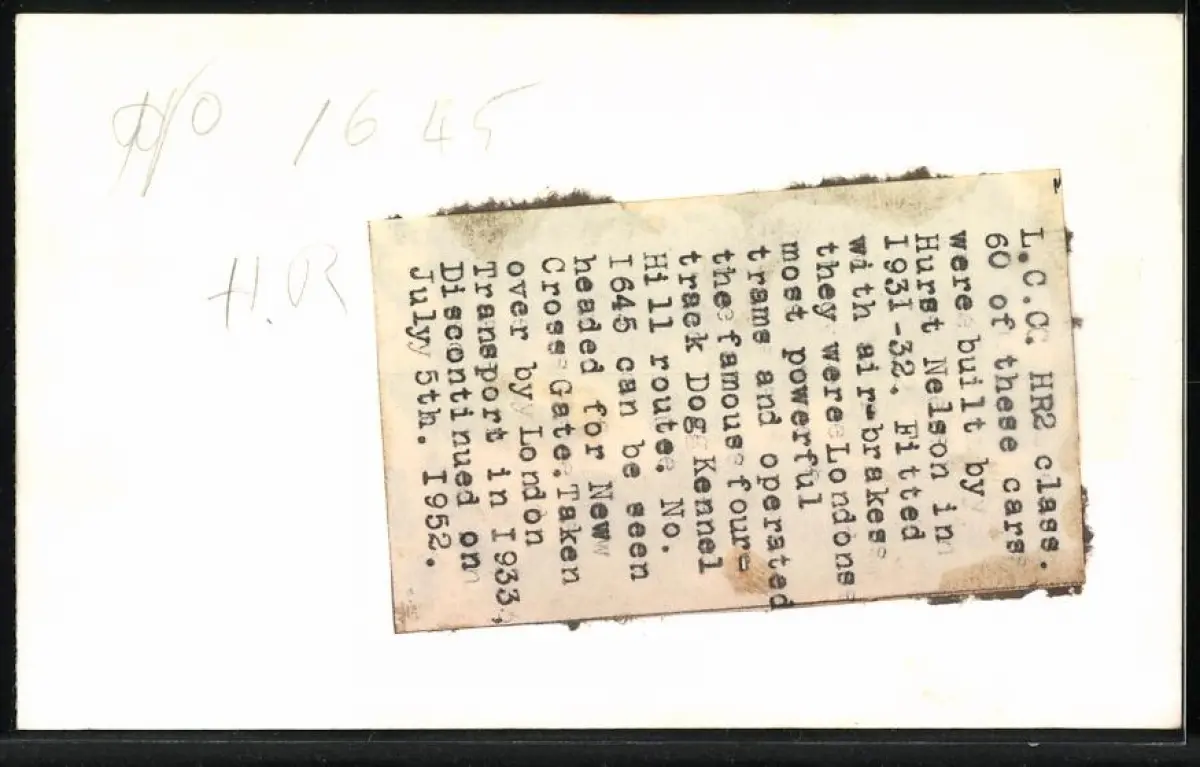 No 1645
H.R
L.C.C. HR2 class.
60 of these cars
were built by
Hurst Nelson in
I931-32. Fitted
with air-brakes
they were Londons
most powerful
trams and operated
the famous four-
track Dog Kennel
Hill route. No.
I645 can be seen
headed for New
Cross Gate. Taken
over by London
Transport in I933,
Discontinued on
July 5th. I952.